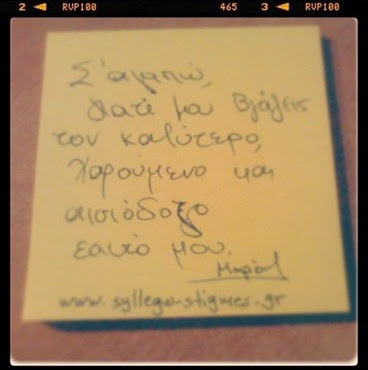 2 RVP100 465 3 RVP100
Σ'αγαπώ,
γιατί μου βγάζεις
τον καλύτερο,
χαρούμενο και
αισιόδοξο
εαυτό μου.
Μαρία
www.syllegw-stigmes.gr